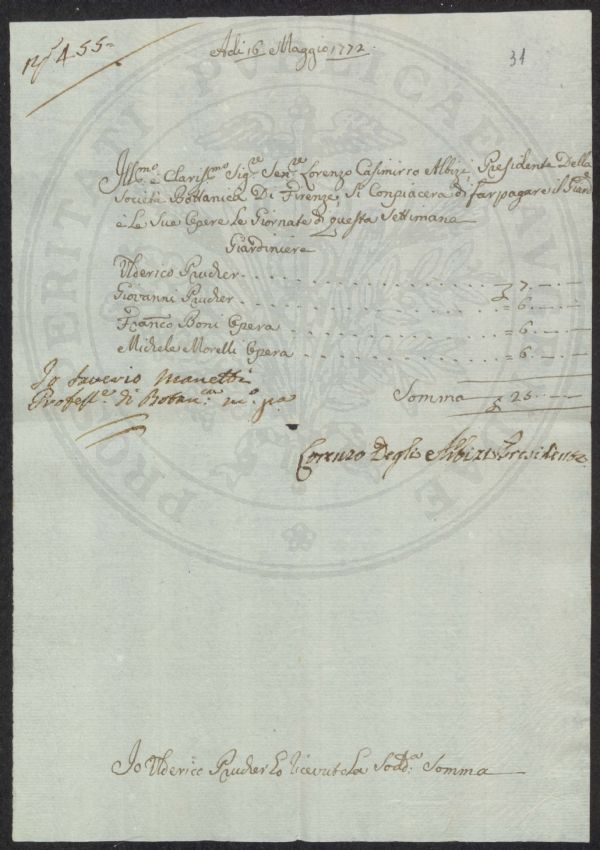 N.º 455=
Adi 16 Maggio 1772.
31
Ill.mo e Claris.mo Sig.re Sen.re Lorenzo Casimirro Albizi Presidente Della
Società Bottanica Di Firenze Si Conpiacera di far pagare il Giard.
e Le Sue Opere Le Giornate di questa Settimana
Giardiniere
Ulderico Prucher - - - 7. - -
Giovanni Prucher - - - = 6. - -
Franc.o Boni Opera - - - = 6. - -
Michele Morelli Opera - - - = 6. - -
Io Saverio Manetti
Profess.e di Botan.ca m.o p.a
Somma 25 - -
Lorenzo Degli Albizi Presidente
Io Ulderico Prucher Ho Ricevuto La Sodd.a Somma
PROSPERITATI PUBLICAE